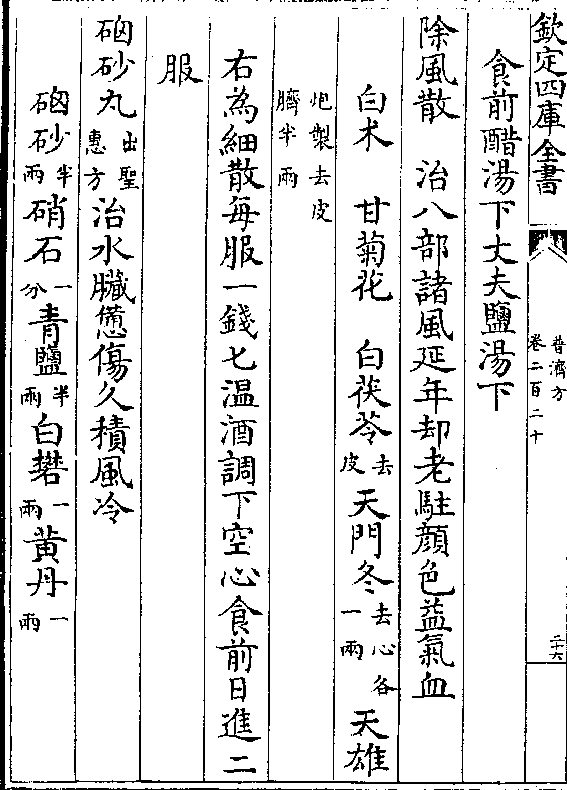 欽定四庫全書
普濟方
卷二百二十
二十六
食前醋湯下丈夫鹽湯下
除風散 治八部諸風延年却老駐顔色益氣血
白术 甘菊花 白茯苓去皮 天門冬去心各一兩 天雄
炮製去皮臍半兩
右為細散每服一錢七温酒調下空心食前日進二
服
硇砂丸出聖惠方 治水臓憊傷久積風冷
硇砂半兩 硝石一分 青鹽半兩 白礬一兩 黃丹一兩